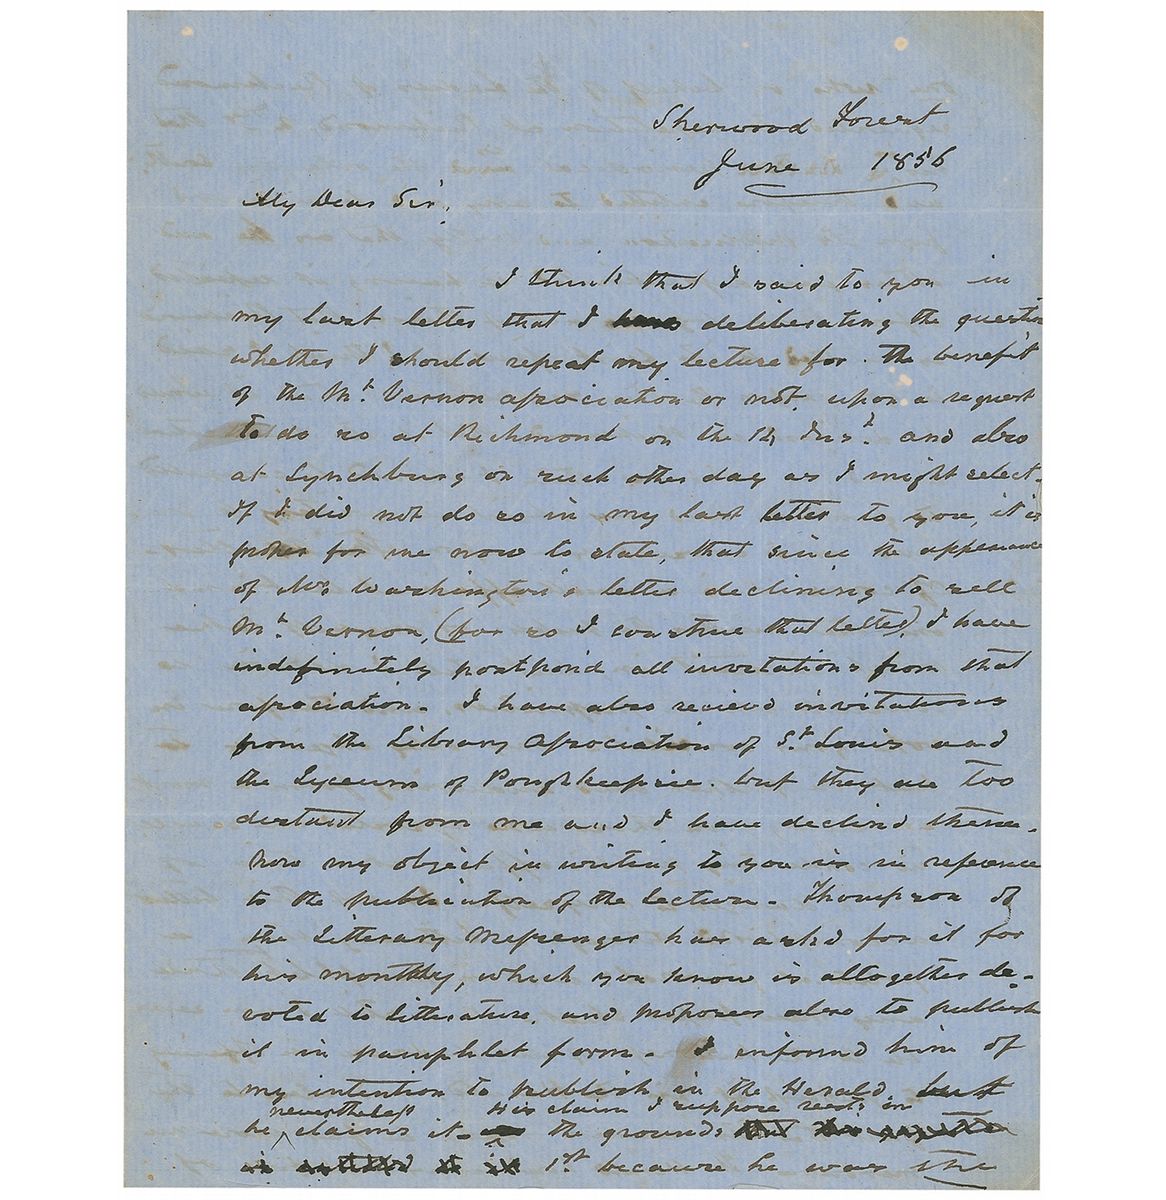 Sherwood Forest
June 1856
My Dear Sir,
I think that I said to you in
my last letter that I deliberating the question
whether I should repeat my lecture for the benefit
of the Mt. Vernon association or not, upon a request
to do so at Richmond on the 12 Inst. and also
at Lynchburg on such other day as I might select.
If I did not do so in my last letter to you, it is
proper for me now to state, that since the appearance
of Mr Washington's letter declining to sell
Mt. Vernon, (for so I construe that letter), I have
indefinitely postpond all invitations from that
association. I have also recievd invitations
from the Library Association of St. Louis and
the Lyceum of Poughkeepsie. but they are too
distant from me and I have declind these.
Now my object in writing to you is in reference
to the publication of the lecture. Thompson of
the Litterary Messenger has askd for it for
his monthly, which you know is altogether de-
voted to litterature, and proposes also to publish
it in pamphlet form. I informd him of
my intention to publish in the Herald, but
nevertheless His claim I suppose rests on
he claims it the grounds
1st. because he was the